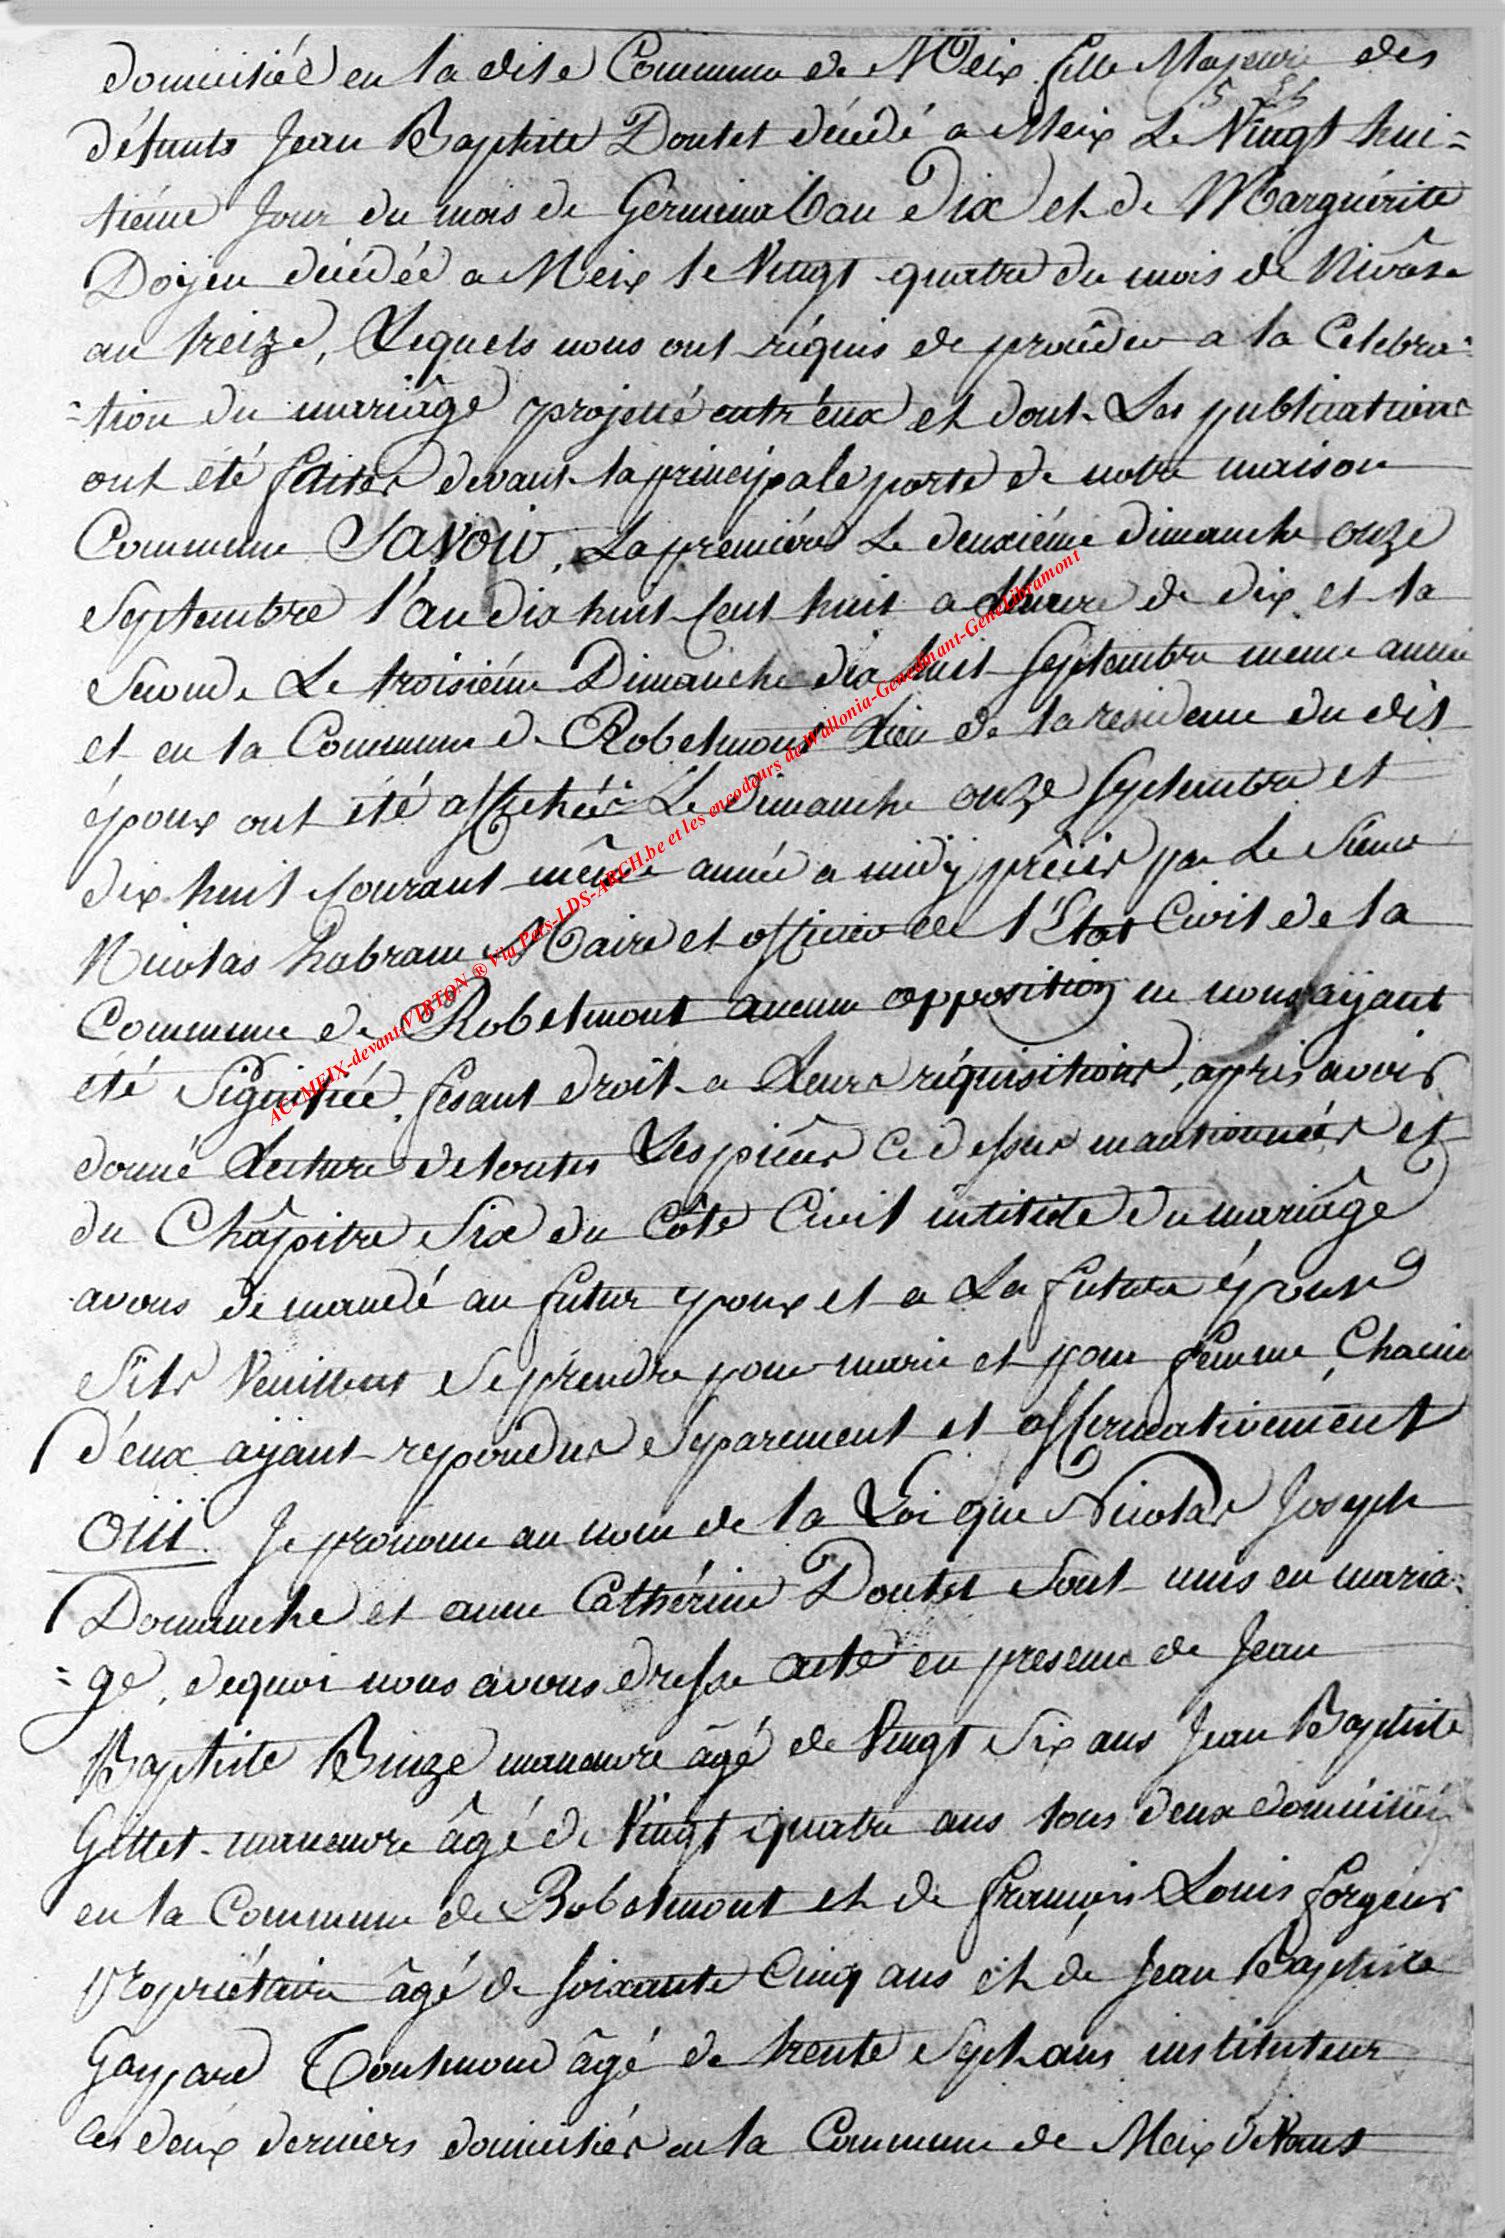 domiciliée en la dite Commune de Meix fille Majeure des
défunts Jean Baptiste Doutet décédé a Meix Le Vingt hui=
tiéme Jour du mois de Germinal au Dix et de Marguérite
Doÿen décédée a Meix le Vingt quatre du mois de Nivôse
an treize, Lequels nous ont réquis de procéder a la Celebra=
=tion du mariâge projetté entr'eux et dont Les publications
ont été faites devant la principale porte de notre maison
Commune Savoir, La premiére Le deuxiéme dimanche onze
Septembre l'an dix huit Cent huit a l'heure de dix et la
Seconde Le troisiéme Dimanche dix huit Septembre meme année
et en la Commune de Robelmont Lieu de la residence du dit
époux ont été affichées Le Dimanche onze Septembre et
dix huit Courant même année a midÿ précis par Le Sieur
Nicolas habran Maire et officier de l'Etat Civil de la
Commune de Robelmont aucune opposition ne nous aÿant
été Signifiée, fesant droit a Leurs réquisitions, apris avoir
donné Lecture de toutes Les piéces Ci dessus mantionnées et
du Châpitre Six du Côte Civil intitule Du mariâge
avons demandé au futur epoux et a La future épouse
S'ils Veuillent Se prendre pour marie et pour femme, Chacun
d'eux aÿant repondus Separement et affirmativement
Oüi. Je prononce au nom de la Loi que Nicolas Joseph
Domanche et anne Cathérine Doutet Sont unis en maria=
=ge, dequoi nous avons dresse acte en presence de Jean
Baptiste Binze manœuvre âgé de Vingt Six ans Jean Baptiste
Gillet manœuvre âgé de Vingt quatre ans tous deux domiciliés
en la Commune de Robelmont et de françois Louis forgeur
Propriétaire âgé de Soixante Cinq ans et de Jean Baptiste
Gaspard Toutmond âgé de trente Sept ans instituteur
les deux derniers domiciliés en la Commune de Meix devant
AC-MEIX-devant-VIRTON ® Via Pets-LDS-ARCH.be et les encodeurs de Wallonia-Genedinant-GeneLibramont